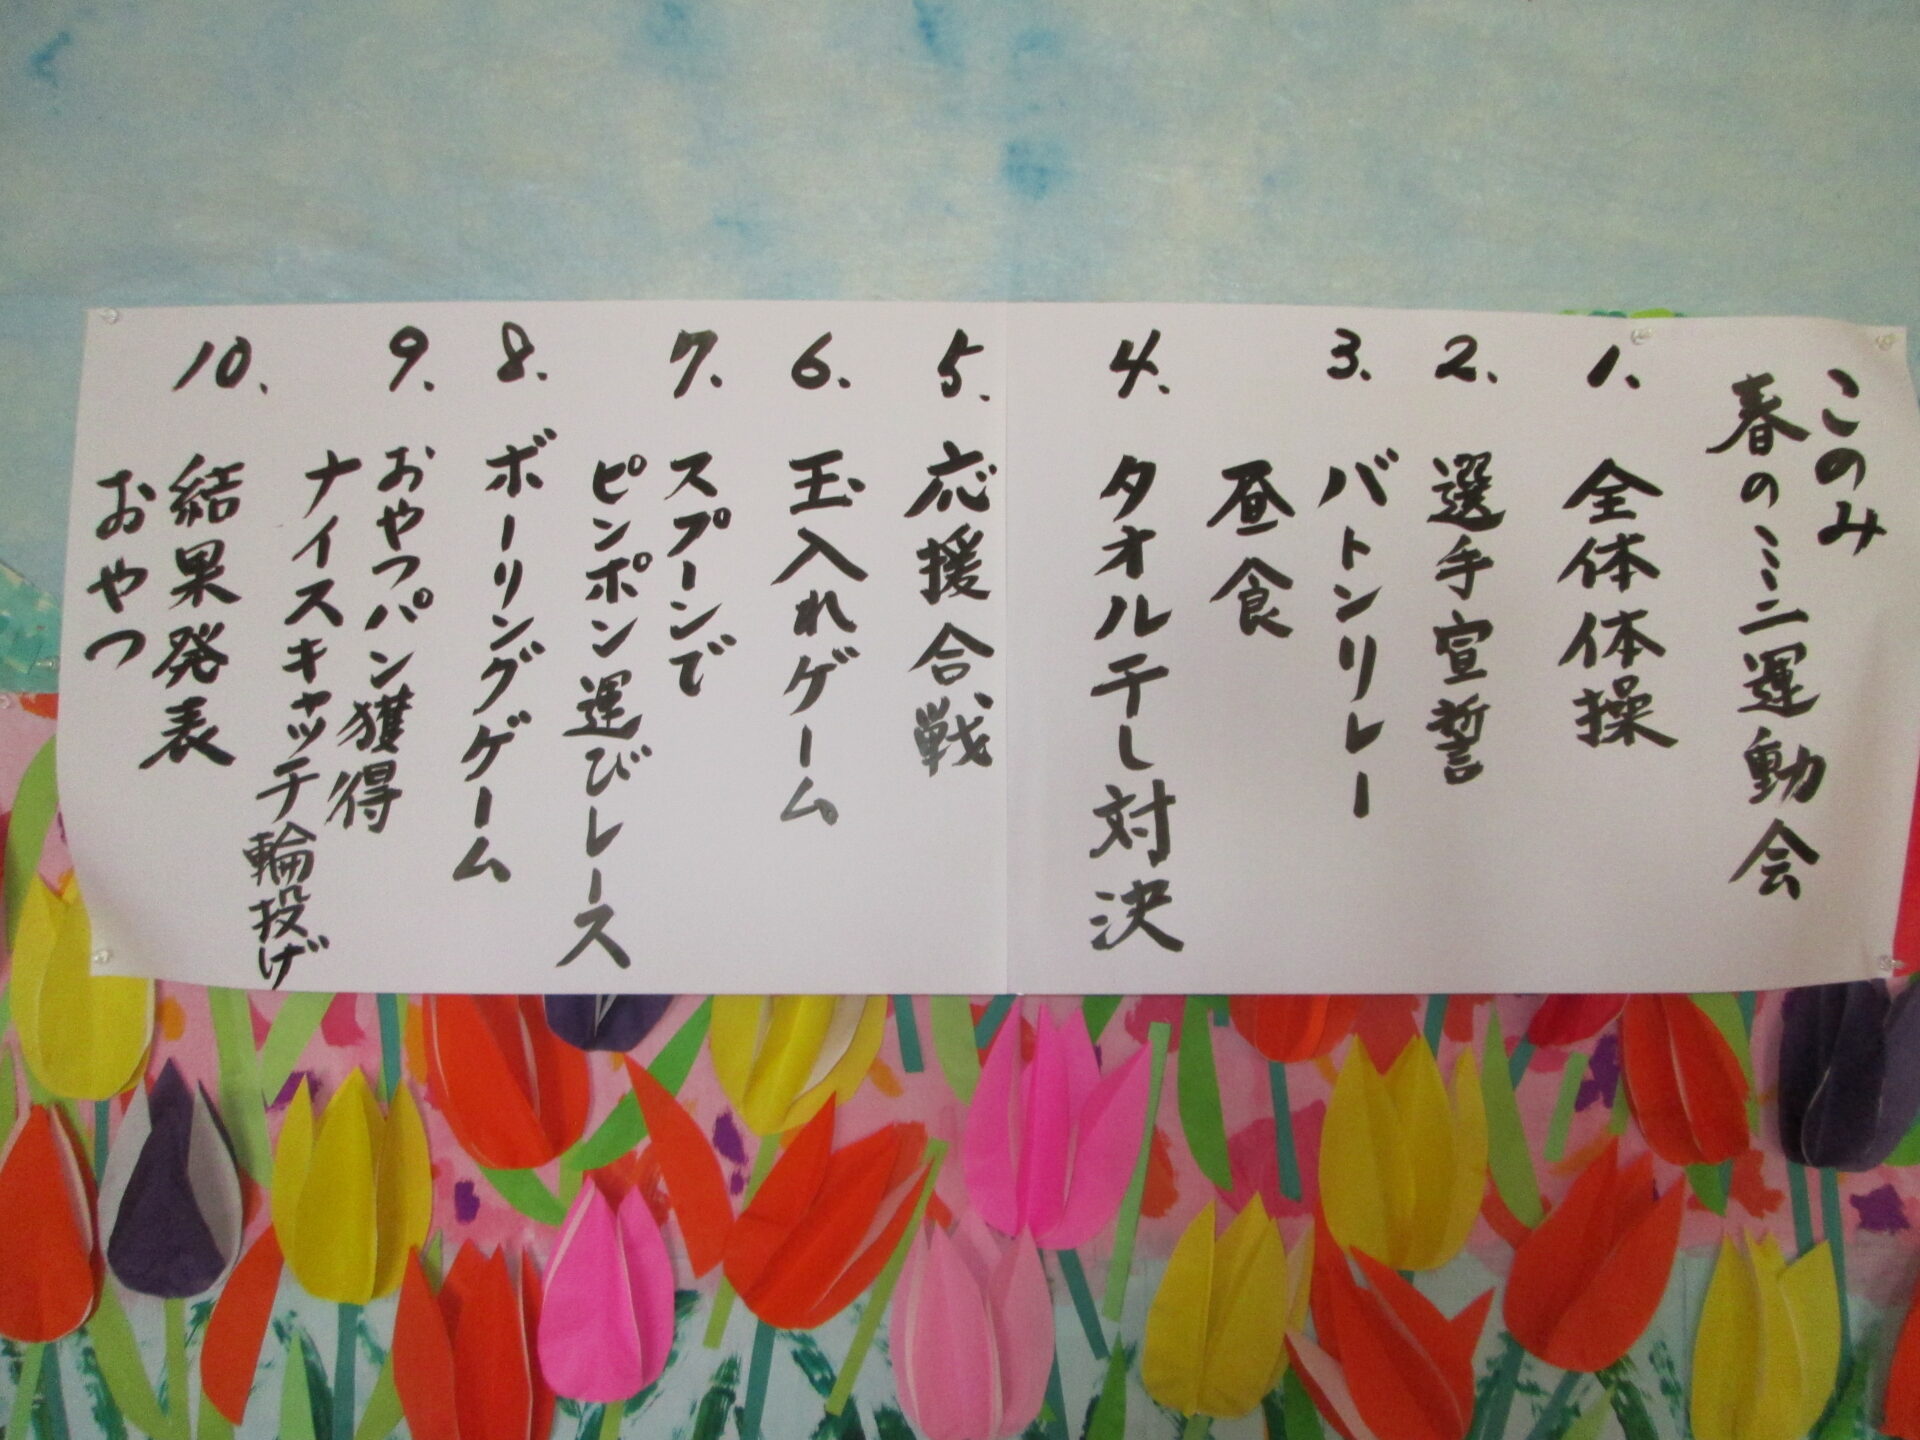 このみ
春のミニ運動会
1、全体体操
2、選手宣誓
3、バトンリレー
昼食
4、タオル干し対決
5、応援合戦
6、玉入れゲーム
7、スプーンで
ピンポン運びレース
8、ボーリングゲーム
9、おやつパン獲得
ナイスキャッチ輪投げ
10、結果発表
おやつ